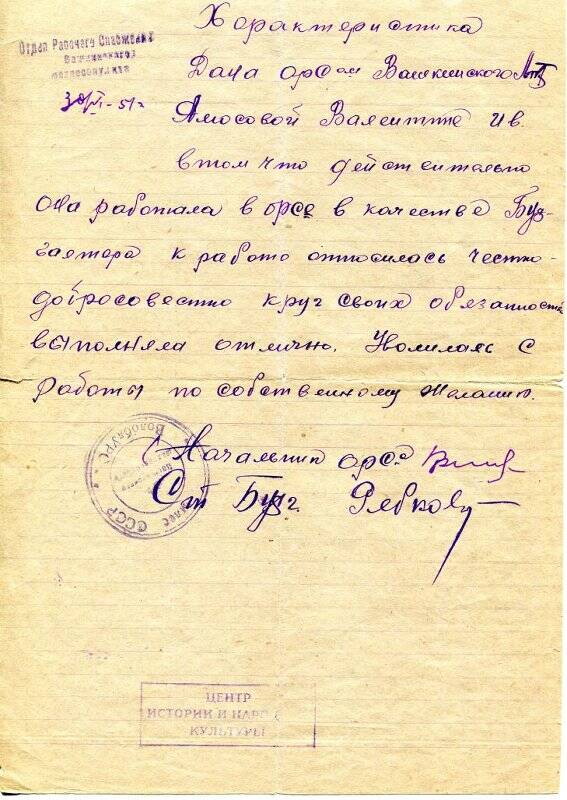 Характеристика
Отдел Рабочего Снабжения
Вашкинского
мехлесопункта
30/VI-51г
Дана орсом Вашкинского
Амосовой Валентине Ив.
в том что действительно
она работала в орсе в качестве Бух-
галтера к работе относилась честно-
добросовестно круг своих обязаностей
выполняла отлично. Уволилась с
работы по собственному желанию.
Начальник орса
Ст Бух. Рябкова
СССР
ЦЕНТР
ИСТОРИИ И НАРОДНОЙ
КУЛЬТУРЫ